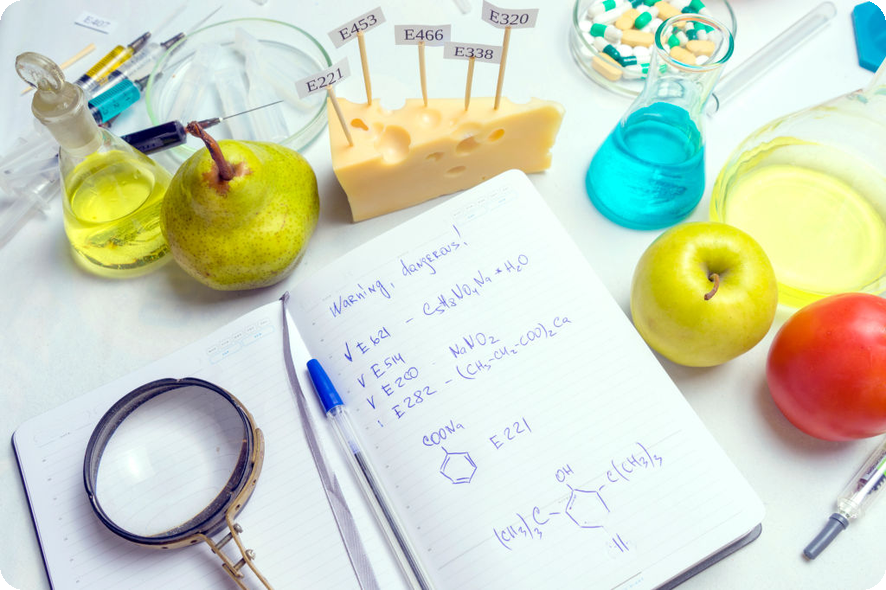 E407
E453
E466
E320
E338
E221
Warning, dangerous!
V E621 – C5H8NO4Na * H2O
V E514
V E200 NaNO2
: E282 – (CH3-CH2-COO)2Ca
COONa
E221
OH
C(CH3)3
(CH3)3C